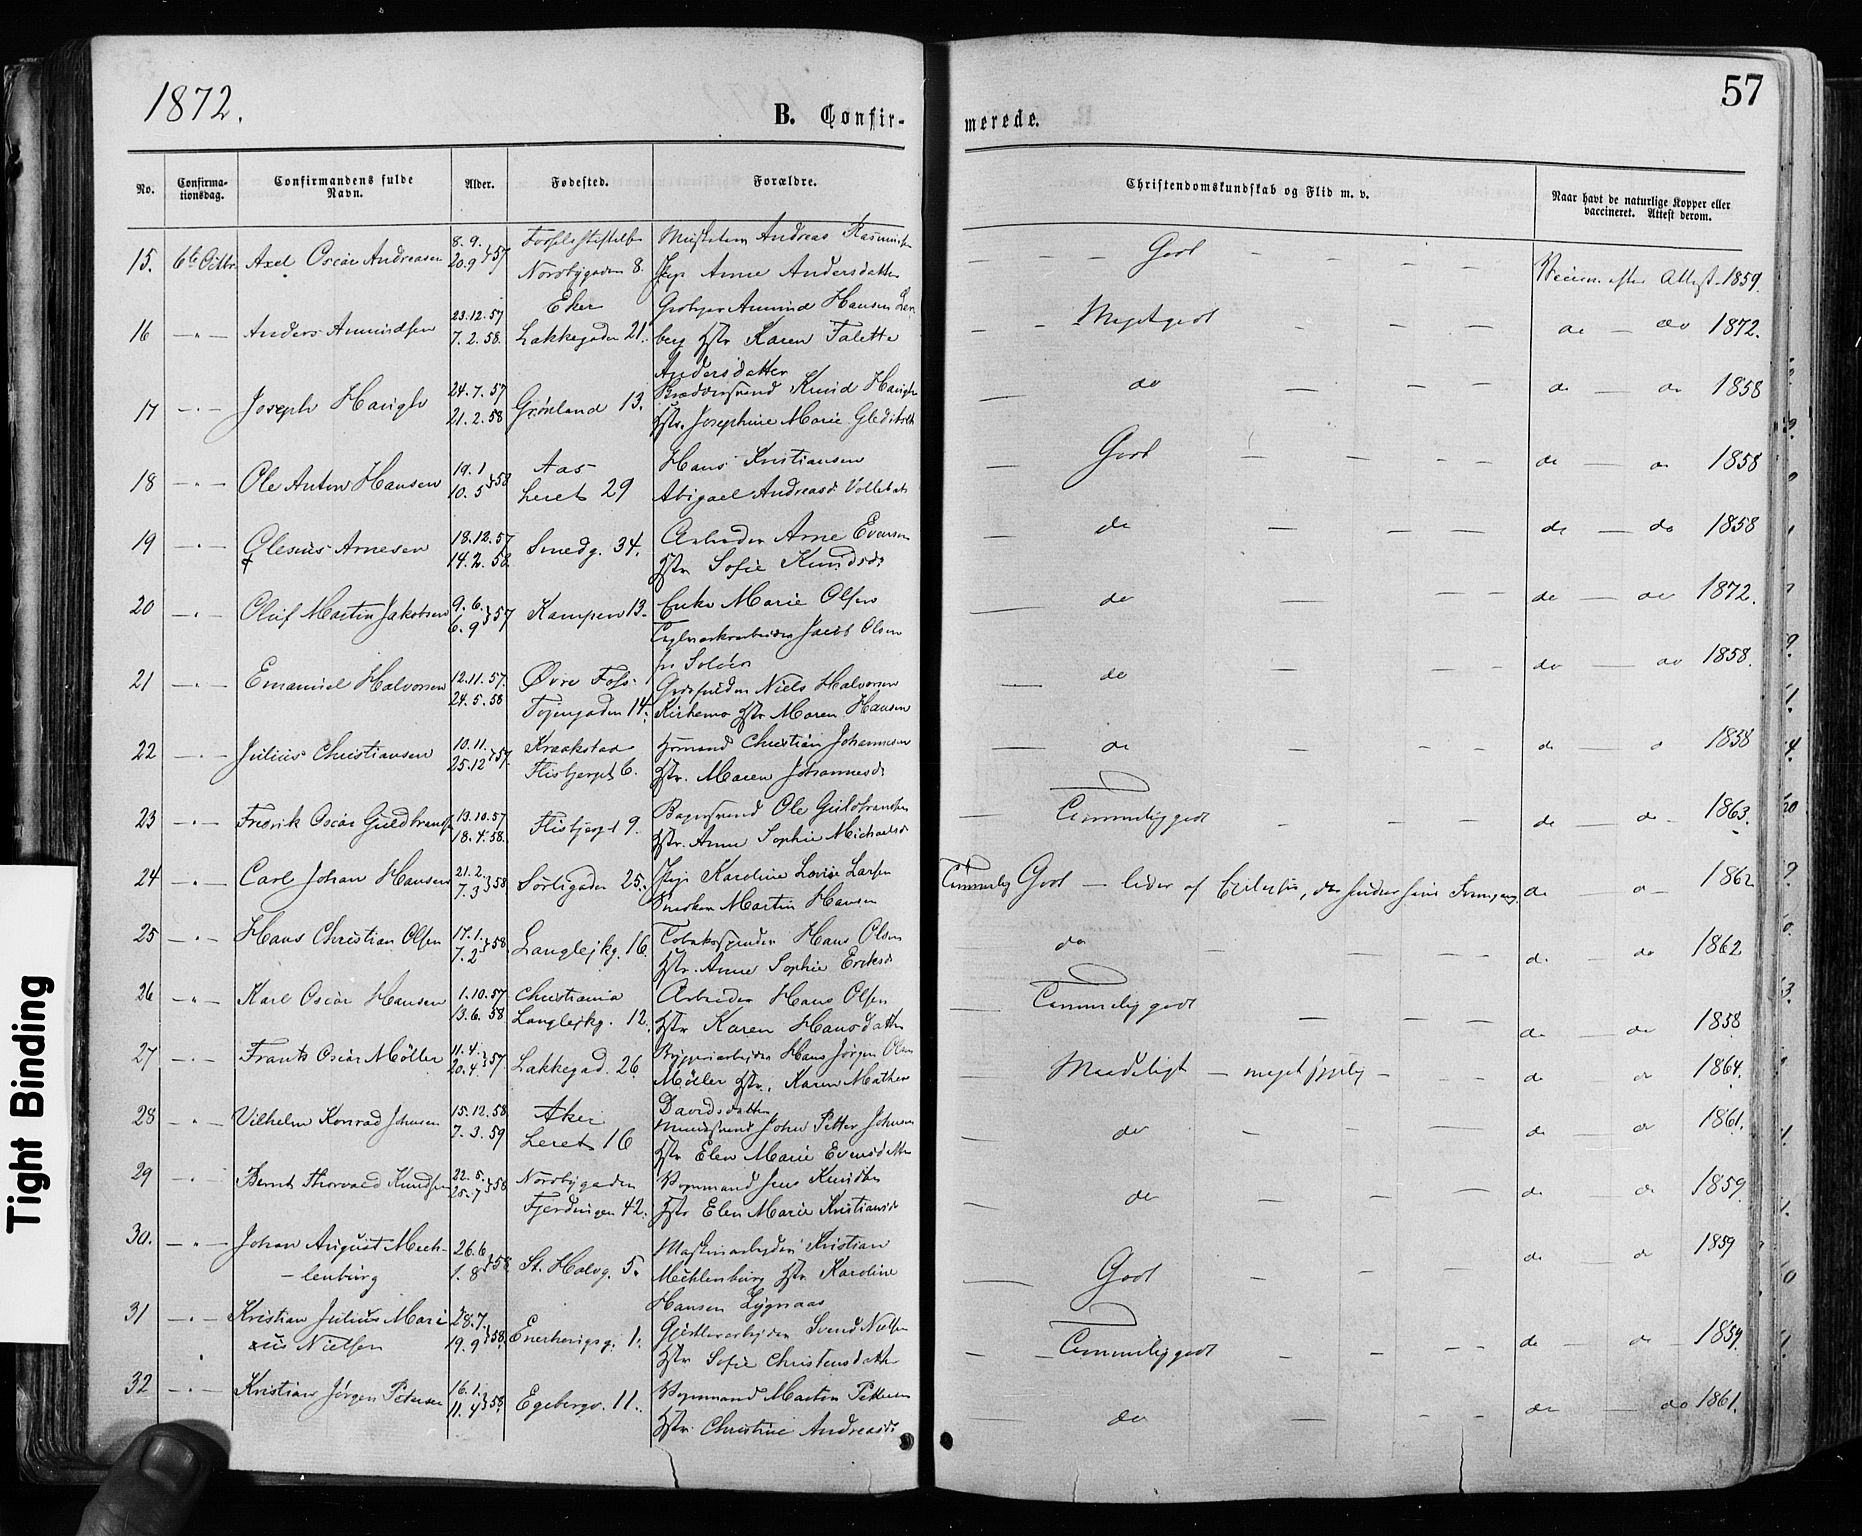 1872.
B. Confir-
merede.
57
No.
Confirma-
tionsdag.
Confirmandens fulde
Navn.
Alder.
Fødested.
Forældre.
Christendomskundskab og Flid m. v.
Naar havt de naturlige Kopper eller
vaccineret. Attest derom.
15. 6te Octbr. Axel Oscar Andreasen 8. 9. 20. 9 } 57 Fødselsstiftelsen
Nordbygaden 8. Andreas
Pige Anne Andersdatter
Godt
Vaccin. efter Attest 1859.
16 - " - Anders Amundsen 23. 12. 57 7. 2. 58. Eker
Lakkegaden 21. Amund Hansen
berg Hstr Karen Talette
Andersdatter
Meget godt
do - do 1872.
17 - " - Joseph Haugh 24. 7. 57 21. 2. 58 Grønland 13. Knud Haugh
Hstr. Josephine Marie
do
do do 1858
18 - " - Ole Anton Hansen 19. 1 10. 5 } 58 Aas
Leret 29 Hans Kristiansen
Abigael Andreasd.
Godt
do - do 1858
19 - " - Olesius Arnesen 18. 12. 57 14. 2. 58. Smedg. 34. Arbeider Arne Evensen
Hstr Sofie Knudsd.
do
do - do 1858
20 - " - Oluf Martin Jakobsen 9. 6. 6. 9 } 57 Kampen 13. Enke Marie Olsen
Teglværksarbeider Jacob Olsen
fr Soløer
do
do - do 1872.
21 - " - Emanuel Halvorsen 12. 11. 57. 24. 5. 58 Øvre Foss
Tøjengaden 14. Niels Halvorsen
Kirkemo Hstr Maren Hansen
do
do - do 1858.
22 - " - Julius Christiansen 10. 11. 25. 12 } 57. Kraakstad
Flisbjerget 6. Christian Johannesen
Hstr. Maren Johannesd.
do
do 1858
23 - " - Fredrik Oscar Guldbrandsen 13. 10. 57 18. 4. 58. Flisbjerget 9. Bagersvend Ole Guldbrandsen
Hstr. Anne Sophie Michaelsd
Temmelig godt
do do - 1863.
24 - " - Carl Johan Hansen 21. 2. 7. 3 } 58 Sørligaden 25. Pige Karoline Lovise Larsen
Snedker Martin Hansen
Temmelig Godt - lider af Epilepsie, der hindrer hans Fremgang
do do - 1862
25 - " - Hans Christian Olsen 17. 1. 7. 2 } 58 Langlejkg. 16. Tobakspinder Hans Olsen
Hstr. Anne Sophie Eriksd
do
do do 1862
26 - " - Karl Oscar Hansen 1. 10. 57 13. 6. 58 Christiania
Langlejkg. 12. Arbeider Hans Olsen
Hstr Karen Hansdatter
Temmelig godt
do do 1858
27 - " - Frants Oscar Möller 11. 4. 20. 4 } 57 Lakkegad. 26 Bryggeriarbejder Hans Jørgen Olsen
Möller Hstr. Karen Mathea
Davidsdatter
Maadeligt - meget
do do 1864.
28 - " - Vilhelm Konrad Johnsen 15. 12. 58 7. 3. 59 Aker
Leret 16 John Petter Johnsen
Hstr Elen Marie Evensdatter
do
do do 1861.
29 - " - Bernt Thorvald Knudsen 22. 5. 25. 7 } 58 Nordbygaden
Fjerdingen 42. Vognmand Jens Knudsen
Hstr Elen Marie Kristiansd
do
do do 1859.
30. - " - Johan August Meck-
lenburg 26. 6 1. 8 } 58 St. Halvg. 5. Maskinarbejder Kristian
Mecklenburg Hstr Karoline
Hansen Lygnaas
Godt
do do 1859
31 - " - Kristian Julius Mari
us Nielsen 28. 7. 19. 9 } 58. Enerhougsg. 1. Svend Nielsen
Hstr Sofie Christensdatter
Temmelig godt
do do 1859.
32 - " - Kristian Jørgen Petersen 16. 1. 11. 4 } 58. Egebergv. 11. Vognmand Morten Pettersen
Hstr Christine Andreasd.
do
do - do 1861.
Tight Binding